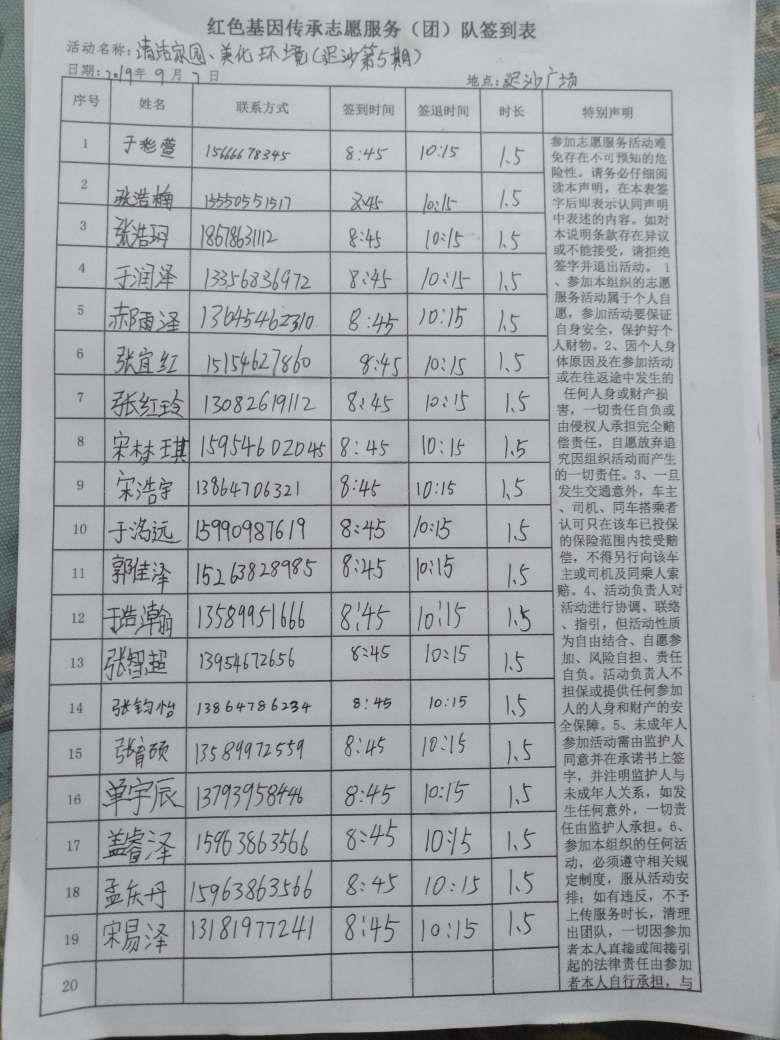 红色基因传承志愿服务（团）队签到表
活动名称：清洁家园、美化环境（迟沙第5期）
日期：2019年9月7日 地点：迟沙广场
序号 姓名 联系方式 签到时间 签退时间 时长 特别声明
1 于彩萱 15666678345 8:45 10:15 1.5
2 张浩楠 15550551517 8:45 10:15 1.5
3 张浩珂 18678631112 8:45 10:15 1.5
4 于润泽 13356836972 8:45 10:15 1.5
5 郝雨泽 13645462310 8:45 10:15 1.5
6 张宜红 15154627860 8:45 10:15 1.5
7 张红玲 13082619112 8:45 10:15 1.5
8 宋梦琪 15954602045 8:45 10:15 1.5
9 宋浩宇 13864706321 8:45 10:15 1.5
10 于洺远 15990987619 8:45 10:15 1.5
11 郭佳泽 15263828985 8:45 10:15 1.5
12 于浩瀚 13589951666 8:45 10:15 1.5
13 张智超 13954672656 8:45 10:15 1.5
14 张钧怡 13864786234 8:45 10:15 1.5
15 张育硕 13589972559 8:45 10:15 1.5
16 单宇辰 13793958446 8:45 10:15 1.5
17 盖睿泽 15963863566 8:45 10:15 1.5
18 孟庆丹 15963863566 8:45 10:15 1.5
19 宋易泽 13181977241 8:45 10:15 1.5
20
参加志愿服务活动难
免存在不可预知的危
险性。请务必仔细阅
读本声明，在本表签
字后即表示认同声明
中表述的内容。如对
本说明条款存在异议
或不能接受，请拒绝
签字并退出活动。 1
、参加本组织的志愿
服务活动属于个人自
愿，参加活动要保证
自身安全，保护好个
人财物。2、因个人身
体原因及在参加活动
或在往返途中发生的
任何人身或财产损
害，一切责任自负或
由侵权人承担完全赔
偿责任，自愿放弃追
究因组织活动而产生
的一切责任。3、一旦
发生交通意外，车主
、司机、同车搭乘者
认可只在该车已投保
的保险范围内接受赔
偿，不得另行向该车
主或司机及同乘人索
赔。4、活动负责人对
活动进行协调、联络
、指引，但活动性质
为自由结合、自愿参
加、风险自担、责任
自负。活动负责人不
担保或提供任何参加
人的人身和财产的安
全保障。5、未成年人
参加活动需由监护人
同意并在承诺书上签
字，并注明监护人与
未成年人关系，如发
生任何意外，一切责
任由监护人承担。6、
参加本组织的任何活
动，必须遵守相关规
定制度，服从活动安
排；如有违反，不予
上传服务时长，清理
出团队，一切因参加
者本人直接或间接引
起的法律责任由参加
者本人自行承担，与